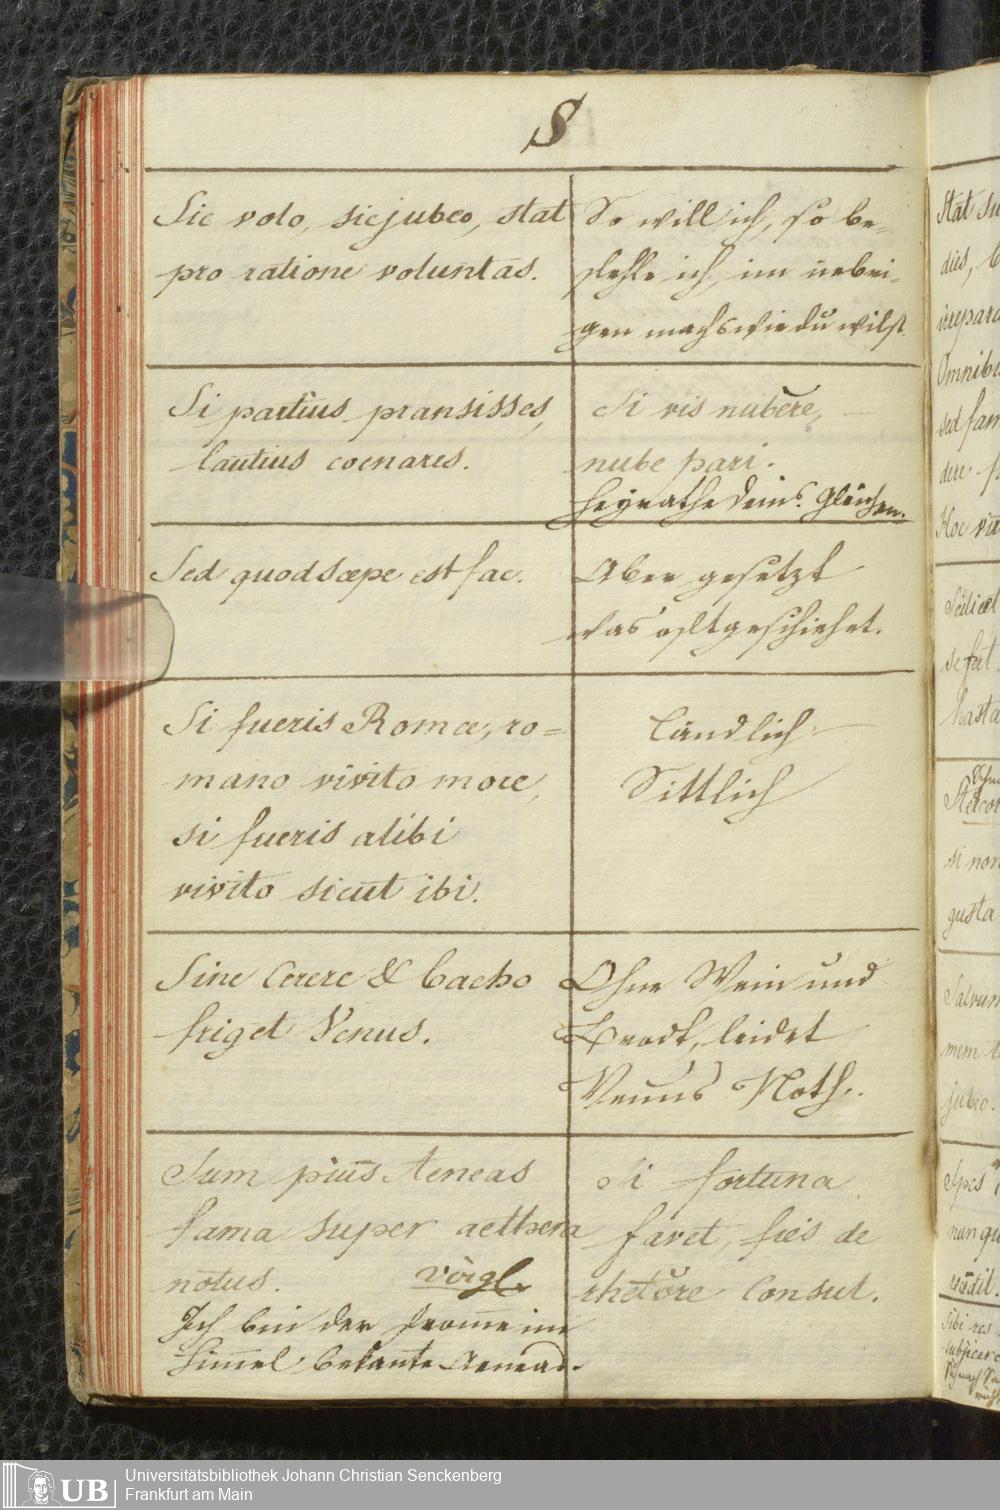 S
Sic volo, sic jubeo, stat
pro ratione voluntas.
So will ich, so be=
fehle ich, im uebri=
gen machs wie du wilst.
Si partius pransisses,
lautius coenares.
Si vis nubere,
nube pari.
Heyrathe deins Gleichen.
Sed quod sæpe est fac.
Aber gesetzt
was oft geschiehet.
Si fueris Romæ, ro=
mano vivito more,
si fueris alibi
vivito sicut ibi.
Ländlich
Sittlich
Sine Cerere & bacho
friget Venus.
Ohne Wein und
Brodt, leidet
Venus Noth.
Sum pius Aeneas
fama super aethera
notus. virgl.
Ich bin der fromme im
Himmel bekante Aeneas.
Si fortuna
favet, fies de
rhetore Consul.
Stat su
dies, b
irrepara
Omnibu
sed fam
dere f
Hoc vir
Scilicet
se fert
hasta
si non
gusta
Salvum
mem t
jubeo.
Spes
nunqu
Sibi res
subjicere
UB
Universitätsbibliothek Johann Christian Senckenberg
Frankfurt am Main